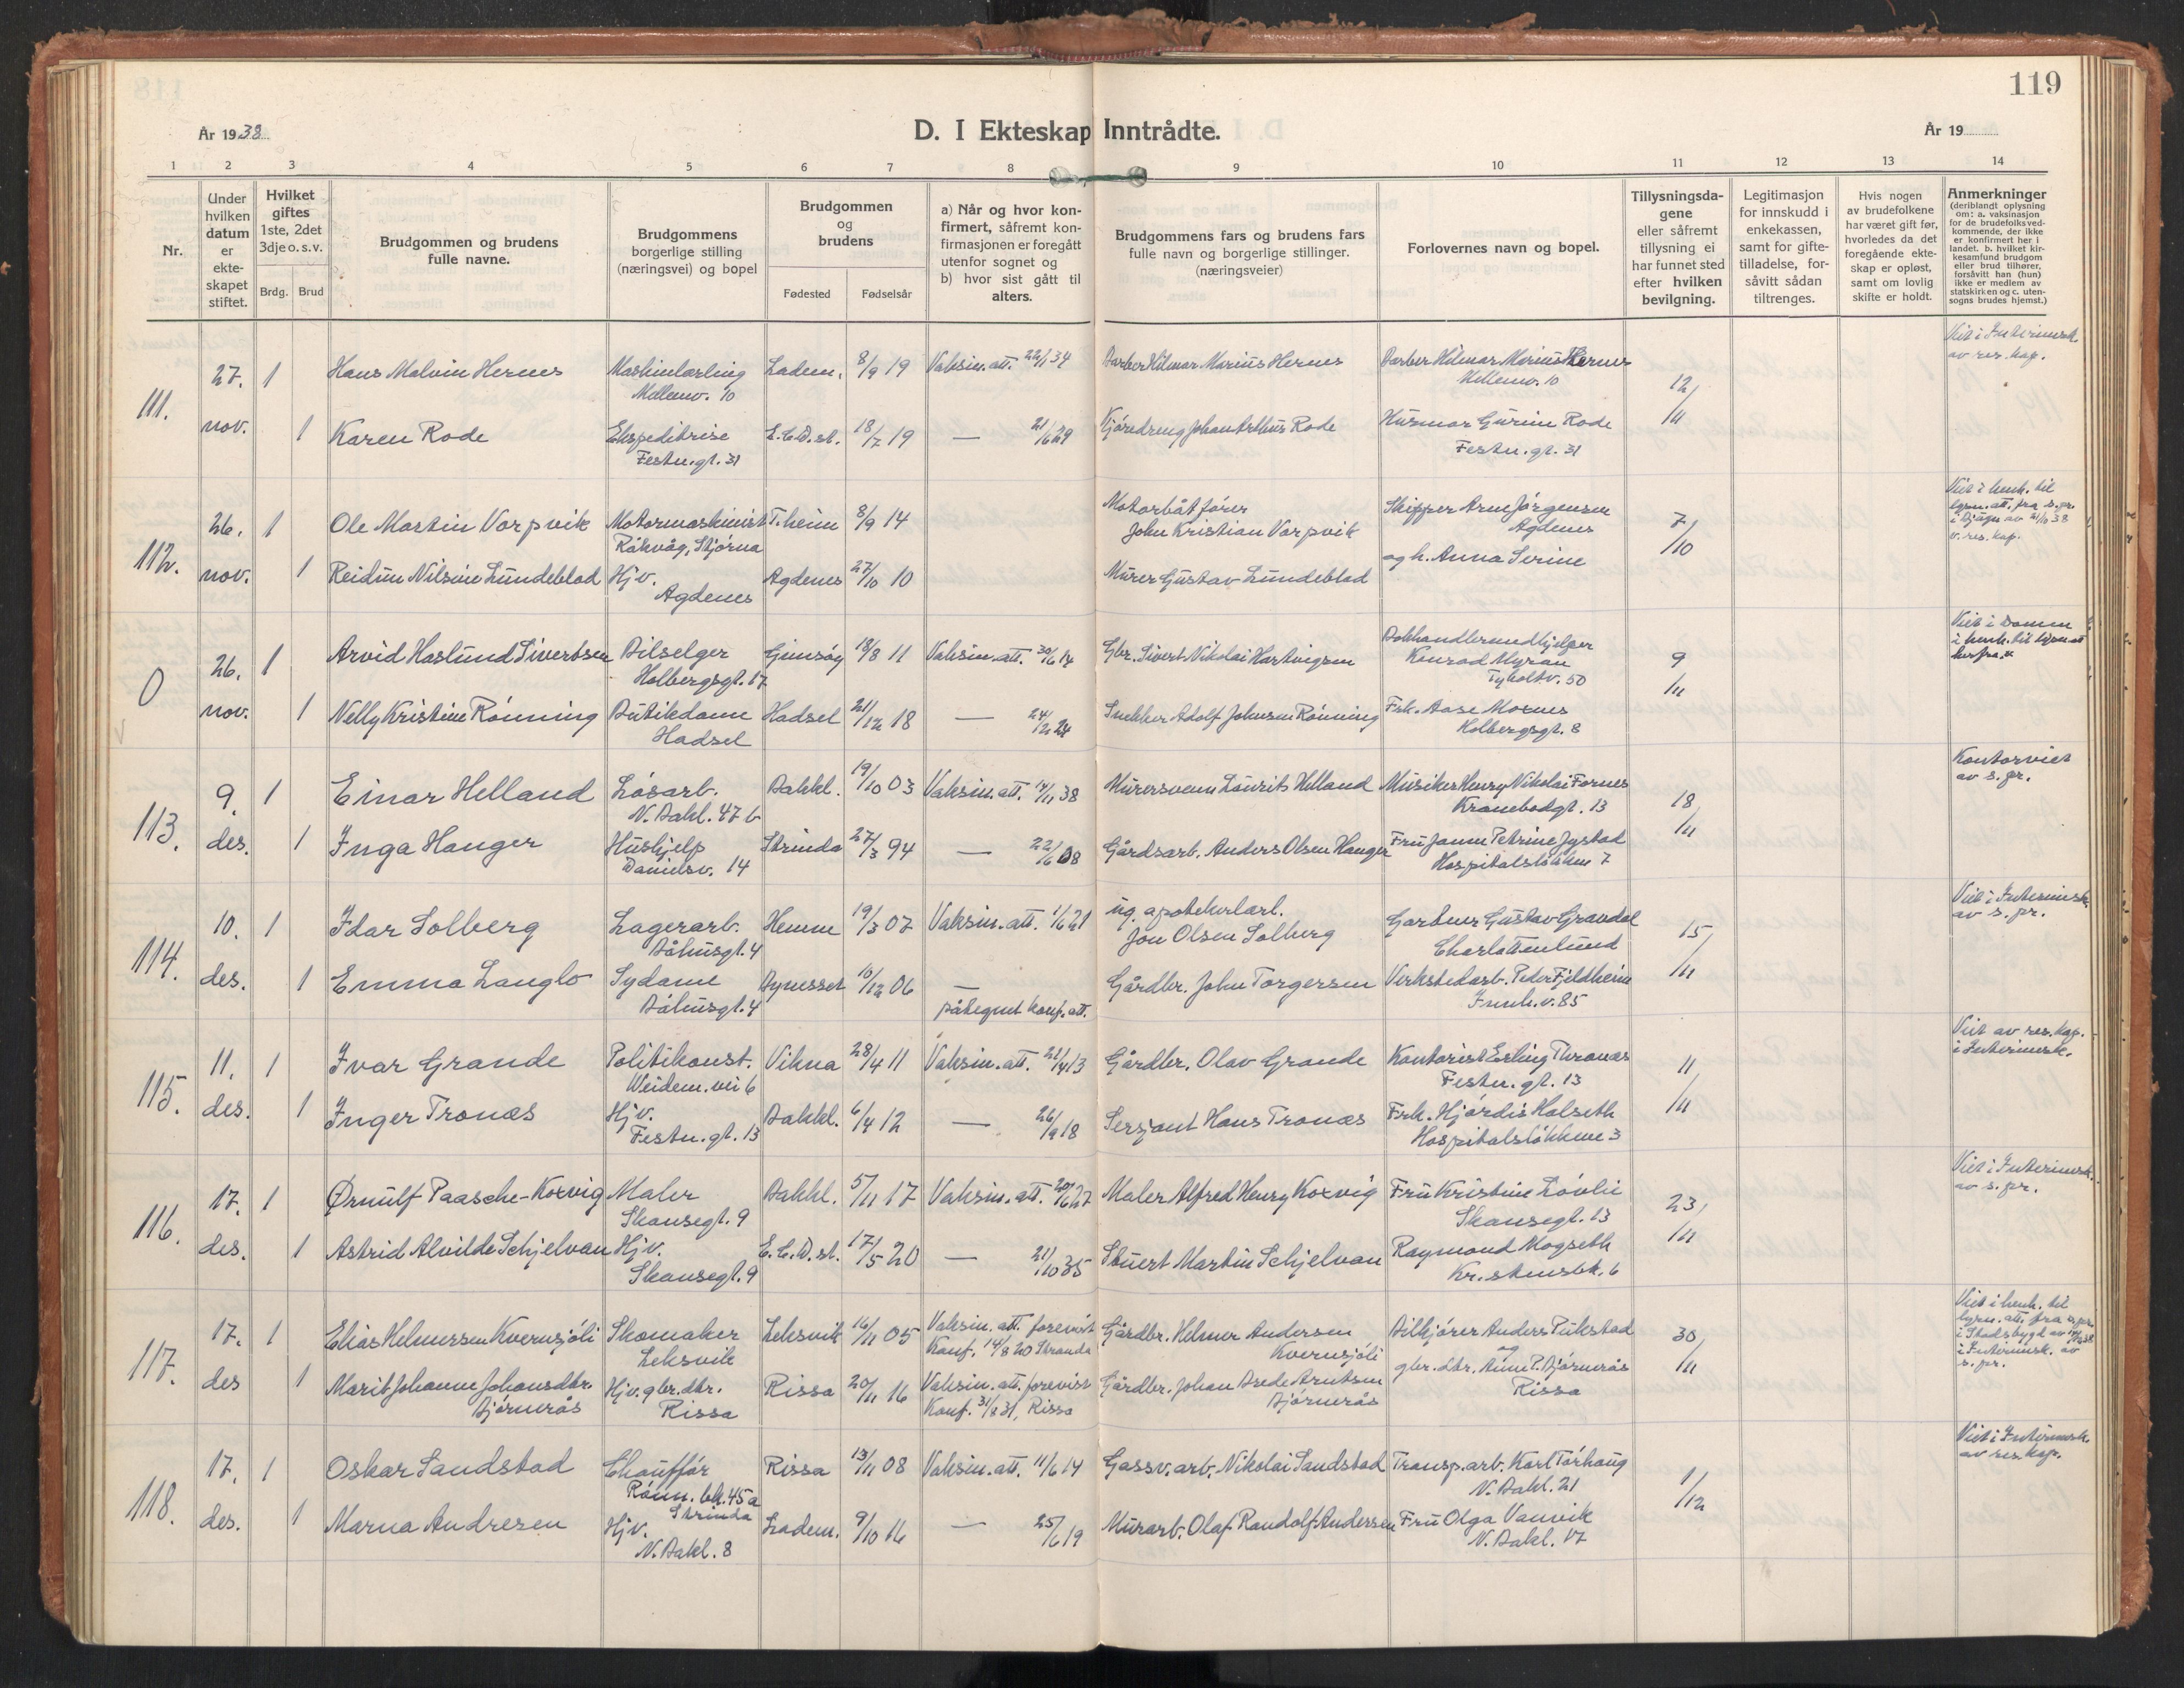 119
År 1938
D. I Ekteskap Inntrådte.
År 19
1 2 3 4 5 6 7 8 9 10 11 12 13 14
Nr.
Under hvilken datum er ekte-skapet stiftet.
Hvilket giftes 1ste, 2det 3dje o. s. v.
Brdg. Brud
Brudgommen og brudens fulle navne.
Brudgommens borgerlige stilling (næringsvei) og bopel
Brudgommen og brudens
Fødested Fødselsår
a) Når og hvor kon-firmert, såfremt kon-firmasjonen er foregått utenfor sognet og
b) hvor sist gått til alters.
Brudgommens fars og brudens fars fulle navn og borgerlige stillinger. (næringsveier)
Forlovernes navn og bopel.
Tillysningsda-gene eller såfremt tillysning ei har funnet sted efter hvilken bevilgning.
Legitimasjon for innskudd i enkekassen, samt for gifte-tilladelse, for-såvitt sådan tiltrenges.
Hvis nogen av brudefolkene har været gift før, hvorledes da det foregående ekte-skap er opløst, samt om lovlig skifte er holdt.
Anmerkninger (deriblandt oplysning om: a. vaksinasjon for de brudefolks ved-kommende, der ikke er konfirmert her i landet. b. hvilket kir-kesamfund brudgom eller brud tilhører, forsåvitt han (hun) ikke er medlem av statskirken og c. uten-sogns brudes hjemst.)
111. 27. nov. 1 Hans Malvin Hernes Maskinlærling Møllenv. 10 Ladem. 8/9 19 Vaksin. att. 22/1 34 Barber Hilmar Marius Hernes Barber Hilmar Marius Hernes Møllenv. 10 12/11 Viet i Interimsk. av res. kap.
1 Karen Rode Ekspeditrise Festn. gt. 31 E.C.D. st. 18/7 19 — 21/6 29 Kjøredreng Johan Arthur Rode Husmor Gurine Rode Festn. gt. 31
112. 26. nov. 1 Ole Martin Vorpvik Motormaskinist Råkvåg, Stjørna T.heim 8/9 14 Motorbåtfører John Kristian Vorpvik Skipper Arne Jørgensen Agdenes 7/10 Viet i henh. til lysn. att. fra s. pr.
1 Reidun Nilsine Lundeblad Hjv. Agdenes Agdenes 27/10 10 Murer Gustav Lundeblad og h. Anna Serine
0 26. nov. 1 Arvid Haslund Sivertsen Bilselger Holbergsgt. 17 Gimsøy 18/8 11 Vaksin. att. 30/6 14 Gbr. Sivert Nikolai Hartvigsen Bokhandlermedhjelper Konrad Myran Tyholtv. 50 9/11 Viet i Domen i henh. til lysn att herfra.
1 Nelly Kristine Rønning Butikdame Hadsel Hadsel 21/12 18 — 24/2 24 Snekker Adolf Johnsen Rønning Frk. Aase Moxnes Holbergsgt. 8
113. 9. des. 1 Einar Helland Løsarb. N. Bakl. 47 b Bakkl. 19/10 03 Vaksin. att. 14/11 38 Murersvenn Lourits Helland Musiker Henry Nikolai Fornes Kranebodgt. 13 18/11 Kontorviet av s. pr.
1 Inga Hanger Hushjelp Danielsv. 14 Strinda 27/3 94 — 22/6 08 Gårdsarb. Anders Olsen Hanger Fru Janna Petrine Jystad Hospitalsløkken 7
114. 10. des. 1 Idar Solberg Lagerarb. Båhusgt. 4 Hemne 19/3 07 Vaksin. att. 1/6 21 ug. apotekerlærl. Jon Olsen Solberg Gartner Gustav Gravdal Charlottenlund 15/11 Viet i Interimsk. av s. pr.
1 Emma Langlo Sydame Båhusgt. 4 Bynesset 10/12 06 — påtegnet konf. att. Gårdbr. John Torgersen Verkstedarb. Peder Fjeldheim Innh. v. 85
115. 11. des. 1 Ivar Grande Politikonst. Weidem. vei 6 Vikna 28/4 11 Vaksin. att. 21/4 13 Gårdbr. Olav Grande Kontorist Erling Thronæs Festn. gt. 13 11/11 Viet av res. kap. i Interimsk.
1 Inger Tronæs Hjv. Festn. gt. 13 Bakkl. 6/4 12 — 26/9 18 Sersjant Hans Tronæs Frk. Hjørdis Halseth Hospitalsløkken 3
116. 17. des. 1 Ørnulf Paasche-Koxvig Maler Skansegt. 9 Bakkl. 5/11 17 Vaksin. att. 20/6 27 Maler Alfred Henry Koxvig Fru Kristine Løvli Skansegt. 13 23/11 Viet i Interimsk. av s. pr.
1 Astrid Alvilde Schjelvan Hjv. Skansegt. 9 E.C.D. st. 17/5 20 — 21/10 35 Stuert Martin Schjelvan Raymond Mogseth Kr. stensbk. 6
117. 17. des 1 Elias Helmersen Kvernsjøli Skomaker Leksvik Leksvik 16/11 05 Vaksin. att. forevist Konf. 14/8 20 Stranda Gårdbr. Helmer Andersen Kvernsjøli Bilkjører Anders Pukstad og 30/11 Viet i henh. til lysn. att. fra s. pr. i Stadsbygd i Interimsk. av s. pr.
1 Marit Johanne Johansdtr. Bjørnerås Hjv. gbr. dtr. Rissa Rissa 20/11 16 Vaksin. att. forevist Konf. 31/8 31, Rissa Gårdbr. Johan Brede Arntsen Bjørnerås gbr. dtr. Anne P. Bjørnerås Rissa
118. 17. des. 1 Oskar Sandstad Chauffør Rønn. bk. 45a Strinda Rissa 13/11 08 Vaksin. att. 11/6 14 Gassv. arb. Nikolai Sandstad Transp. arb. Karl Tørhaug N. Bakl. 21 1/12 Viet i Interimsk. av res. kap.
1 Marna Andresen Hjv. N. Bakl. 8 Ladem. 9/10 16 — 25/6 19 Murarb. Olaf Randolf Andersen Fru Olga Vanvik N. Bakl. 17